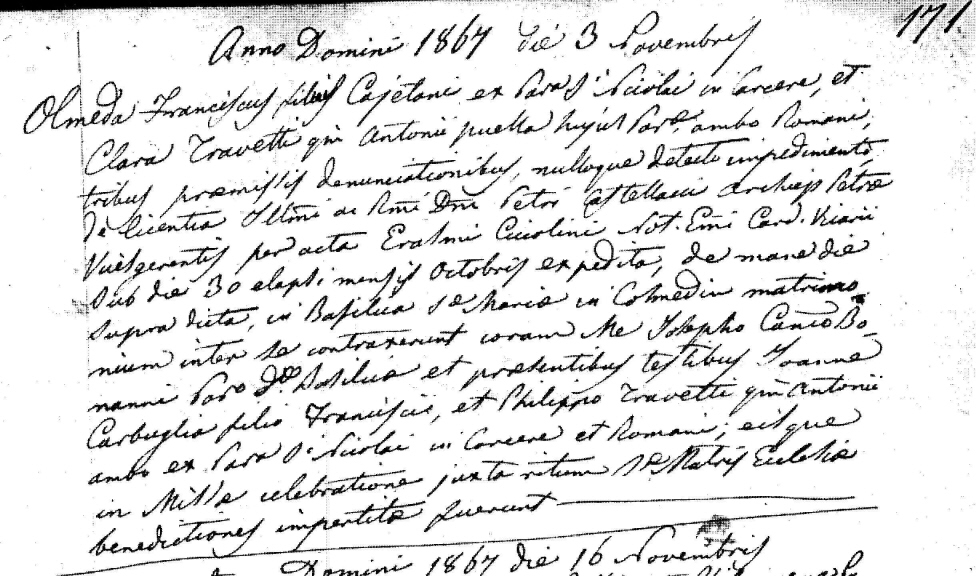 171.
Anno Domini 1867 die 3 Novembris
Olmeda Franciscus filius Cajetani ex Para S. Nicolai in Carcere, et
Clara Travetti qm̃ Antonii puella hujus Par.æ, ambo Romani,
tribus præmissis denunciationibus, nulloque detecto impedimento,
de licentia Illm̃i ac Rm̃i Dn̄i Petri Castellacci Archiep. Petræ
Vicesgerentis per acta Erasmi Ciccolini Not. Em̃i Card. Vicarii
sub die 30 elapsi mensis Octobris expedita, de mane die
supra dicta, in Basilica S.æ Mariæ in Cosmedin matrimo
nium inter se contraxerunt coram Me Josepho Can.co Bo-
nanni Par.o d.æ Basilicæ et præsentibus testibus Joanne
Carbuglia filio Francisci, et Philippo Travetti qm̃ Antonii
ambo ex Para S. Nicolai in Carcere et Romani; eisque
in Missæ celebratione juxta ritum S.æ Matris Ecclesiæ
benedictiones impertitæ fuerunt
Domini 1867 die 16 Novembris